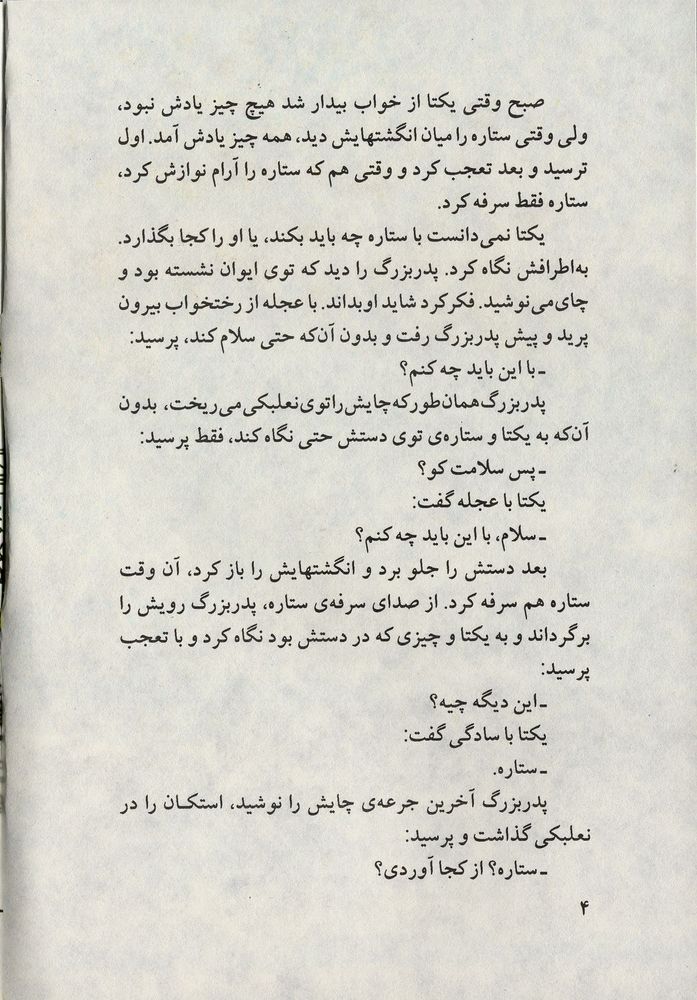 صبح وقتی یکتا از خواب بیدار شد هیچ چیز یادش نبود،
ولی وقتی ستاره را میان انگشتهایش دید، همه چیز یادش آمد. اول
ترسید و بعد تعجب کرد و وقتی هم که ستاره را آرام نوازش کرد،
ستاره فقط سرفه کرد.
یکتا نمی‌دانست با ستاره چه باید بکند، یا او را کجا بگذارد.
به‌اطرافش نگاه کرد. پدربزرگ را دید که توی ایوان نشسته بود و
چای می‌نوشید. فکر کرد شاید او بداند. با عجله از رختخواب بیرون
پرید و پیش پدربزرگ رفت و بدون آن‌که حتی سلام کند، پرسید:
ـ با این باید چه کنم؟
پدربزرگ همان‌طور که چایش را توی نعلبکی می‌ریخت، بدون
آن‌که به یکتا و ستاره‌ی توی دستش حتی نگاه کند، فقط پرسید:
ـ پس سلامت کو؟
یکتا با عجله گفت:
ـ سلام، با این باید چه کنم؟
بعد دستش را جلو برد و انگشتهایش را باز کرد، آن وقت
ستاره هم سرفه کرد. از صدای سرفه‌ی ستاره، پدربزرگ رویش را
برگرداند و به یکتا و چیزی که در دستش بود نگاه کرد و با تعجب
پرسید:
ـ این دیگه چیه؟
یکتا با سادگی گفت:
ـ ستاره.
پدربزرگ آخرین جرعه‌ی چایش را نوشید، استکان را در
نعلبکی گذاشت و پرسید:
ـ ستاره؟ از کجا آوردی؟
۴